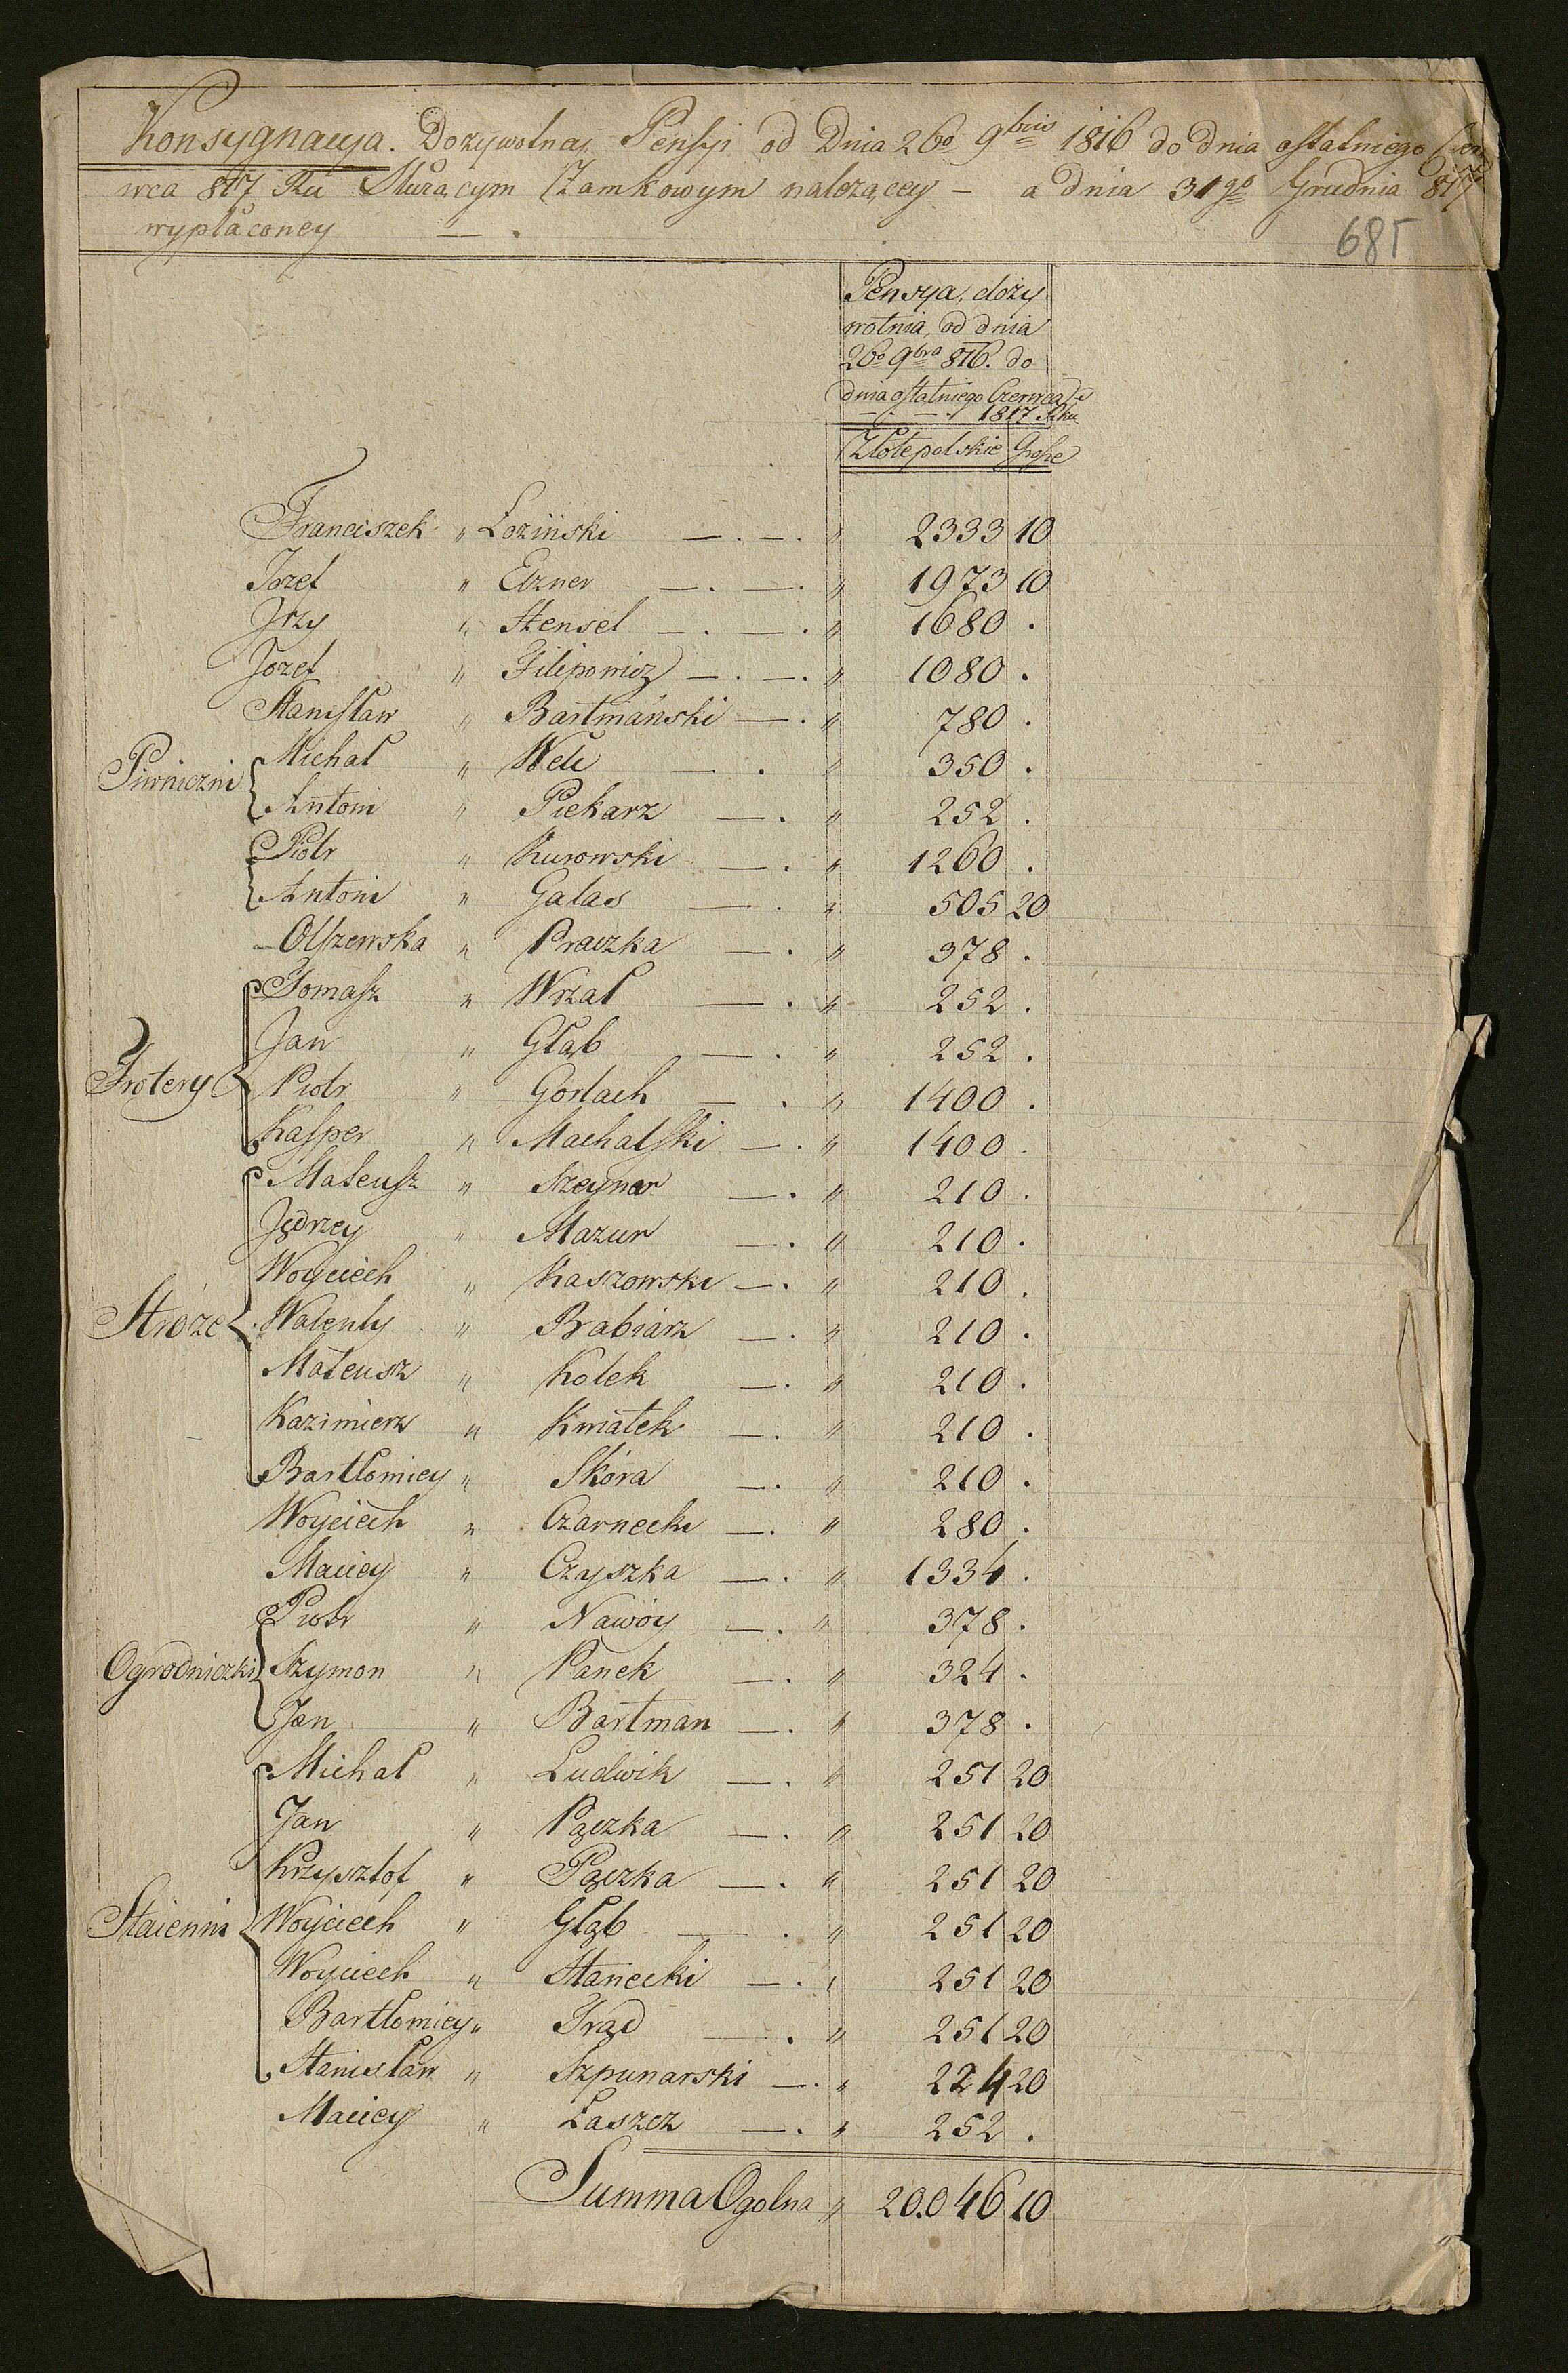 Konsygnacya. Dozywotney Pensyi od Dnia 26º 9bris 1816 do dnia ostatniego Czer
wca 817 Rku Słuzącym Zamkowym nalezącey – a dnia 31go Grudnia 817
wypłaconey — .
685
Pensya dozy
wotnia, od dnia
26º 9bra 816. do
dnia ostatniego Czerwca
1817 Rku
Złotepolskie Grosze
Franciszek " Łoziński — . — . " 2333 10
Jozef " Elzner — . — . " 1973 10
Jrzy " Hensel — . — . " 1680 .
Jozef " Filipowicz — . — . " 1080 .
Stanisław " Bartmański — . " 780 .
Piwniczni
Michał " — . " 350 .
Antoni " Piekarz — . " 252 .
Piotr " Kurowski — . " 1260 .
Antoni " Galas — . " 505 20
– Olszewska " Praczka — . " 378 .
Tomasz " Wrzał — . " 252 .
Jan " Głąb — . " 252 .
Froterzy
Piotr " Gorlach — . " 1400 .
Kasper " Machalski — . " 1400 .
Mateusz " Szeynar — . " 210 .
Jędrzey " Mazur — . " 210 .
Woyciech " Kaszowski — . " 210 .
Stróze
Walenty " Babiarz — . " 210 .
Mateusz " Kołek — . " 210 .
Kazimierz " Kwiatek — . " 210 .
Bartłomiey " Skóra — . " 210 .
Woyciech " Czarnecki — . " 280 .
Maciey " Czyszka — . " 1334 .
Piotr " Nawóy — . " 378 .
Ogrodniczki
Szymon " Panek — . " 324 .
Jan " Bartman — . " 378 .
Michał " Ludwik — . " 251 20
Jan " Pączka — . " 251 20
Krzysztof " Pączka — . " 251 20
Staienni
Woyciech " Głąb — . " 251 20
Woyciech " Stanecki — . " 251 20
Bartłomiey " Frąd — . " 251 20
Stanisław " Szpunarski — . " 224 20
Maciey " Łaszcz — . " 252 .
Summa Ogolna " 20.046 10